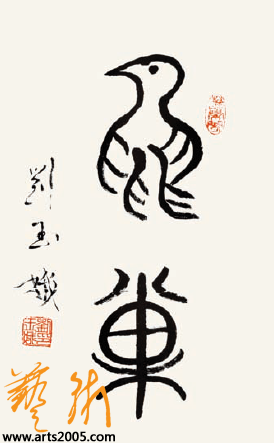 鳥巢
劉玉
藝術
www.arts2005.com